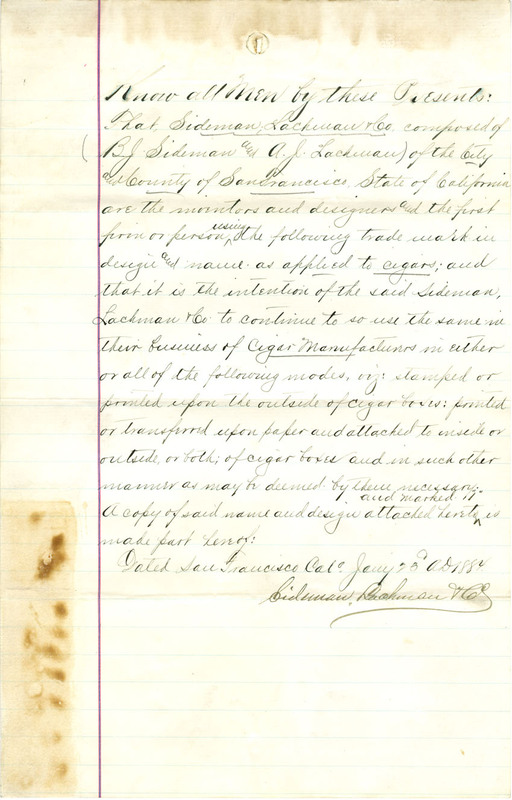 Know all Men by these Presents:
That, Sideman, Lachman & Co. composed of
(B.J. Sideman and A. J. Lachman) of the City
and County of San Francisco, State of California
are the inventors and designers and the first
firm or person, using the following trade mark in
design and name as applied to cigars; and
that it is the intention of the said Sideman,
Lachman & Co to continue to so use the same in
their business of Cigar Manufacturers in either
or all of the following modes, viz: stamped or
printed upon the outside of cigar boxes: printed
or transferred upon paper and attached to inside or
outside, or both; of cigar boxes and in such other
manner as may be deemed by them necessary;
A copy of said name and design attached hereto and marked "1" is
made part hereof:
Dated San Francisco Cala Jany 23d AD 1884
Sideman, Lachman & Co